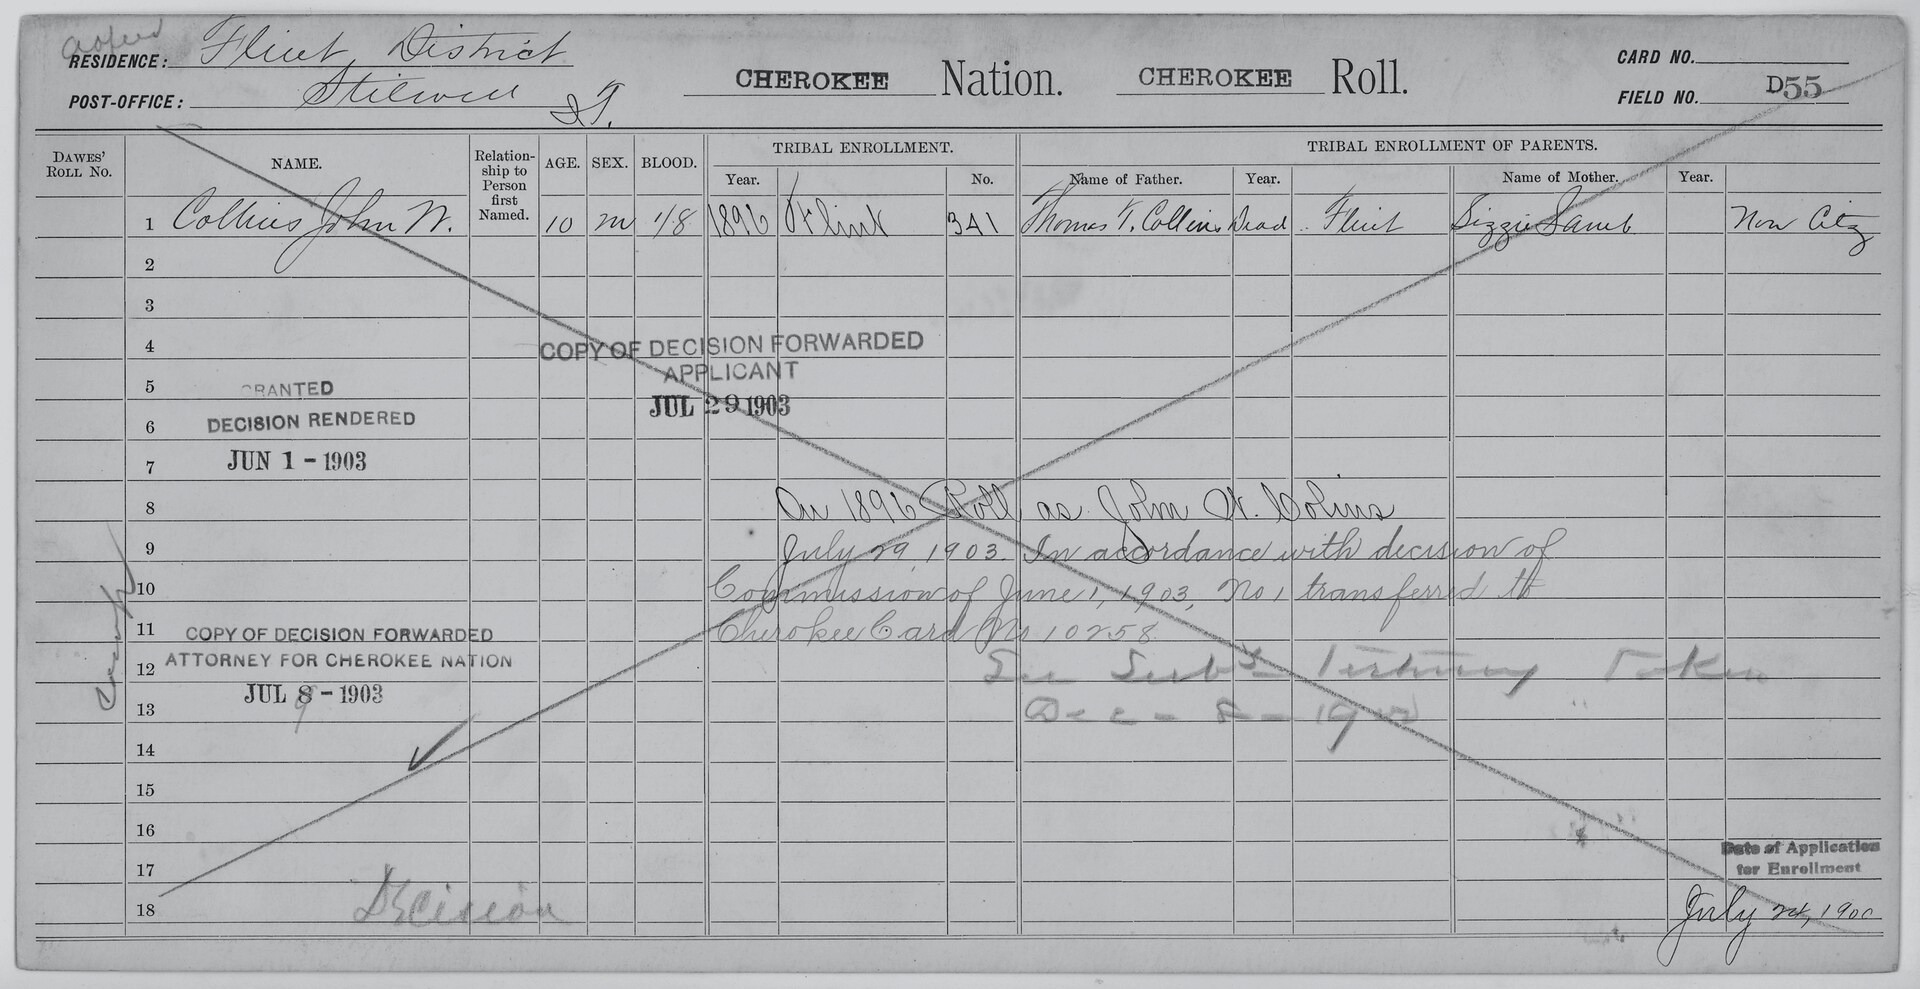 RESIDENCE: Flint District
POST-OFFICE: Stilwell I.T.
CHEROKEE Nation. CHEROKEE Roll.
CARD NO.
FIELD NO. D55
DAWES' ROLL NO.
NAME.
Relationship to Person first Named.
AGE.
SEX.
BLOOD.
TRIBAL ENROLLMENT.
Year.
No.
TRIBAL ENROLLMENT OF PARENTS.
Name of Father.
Year.
Name of Mother.
Year.
1 Collins John W. 10 M 1/8 1896 Flint 341 Thomas T. Collins Dead Flint Lizzie Lamb Non Citz
2
3
4
COPY OF DECISION FORWARDED
APPLICANT
JUL 29 1903
5
GRANTED
6
DECISION RENDERED
7
JUN 1 - 1903
8
On 1896 Roll as John W. Colins
9
July 29, 1903. In accordance with decision of
10
Commission of June 1, 1903, No 1 transferred to
11
Cherokee Card No 10258
COPY OF DECISION FORWARDED
ATTORNEY FOR CHEROKEE NATION
JUL 8 - 1903
9
12
See Testimony Taken
13
Dec - 8 -
14
15
16
17
18
Decision
Date of Application
for Enrollment
July 24, 1900